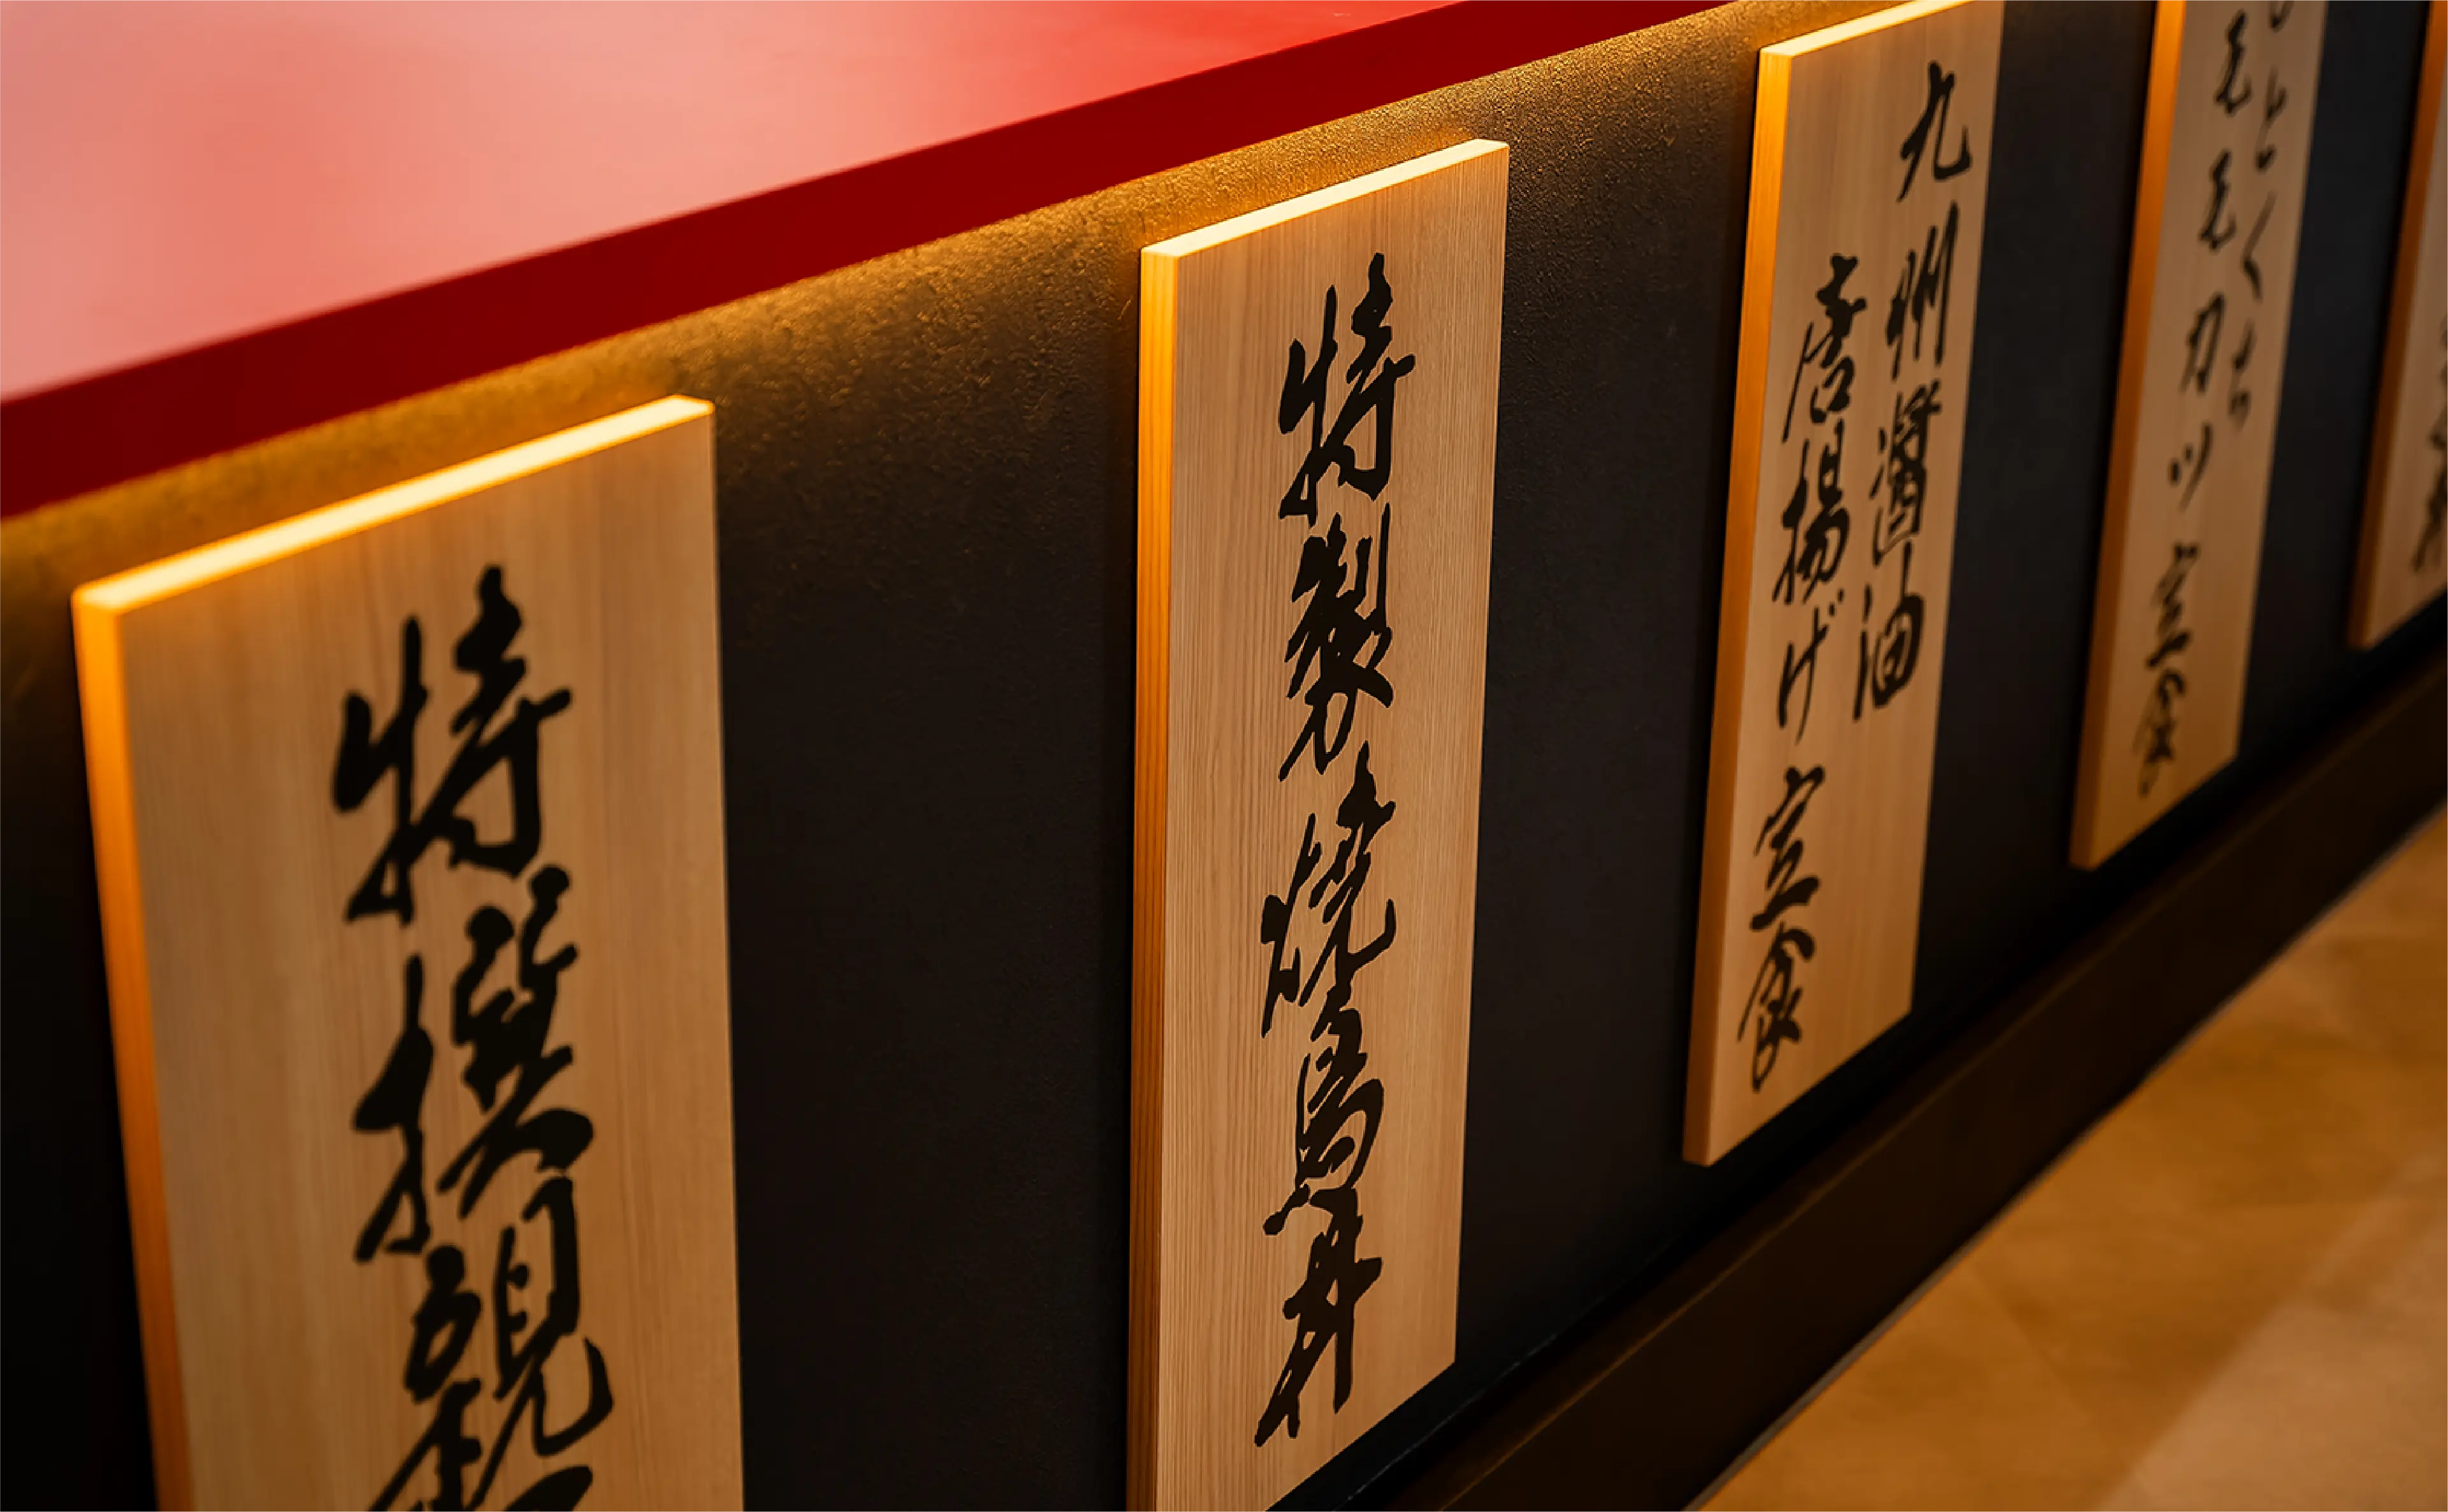 特撰親
特製焼鳥丼
九州醤油
唐揚げ定食
ひとくち
モモカツ定食